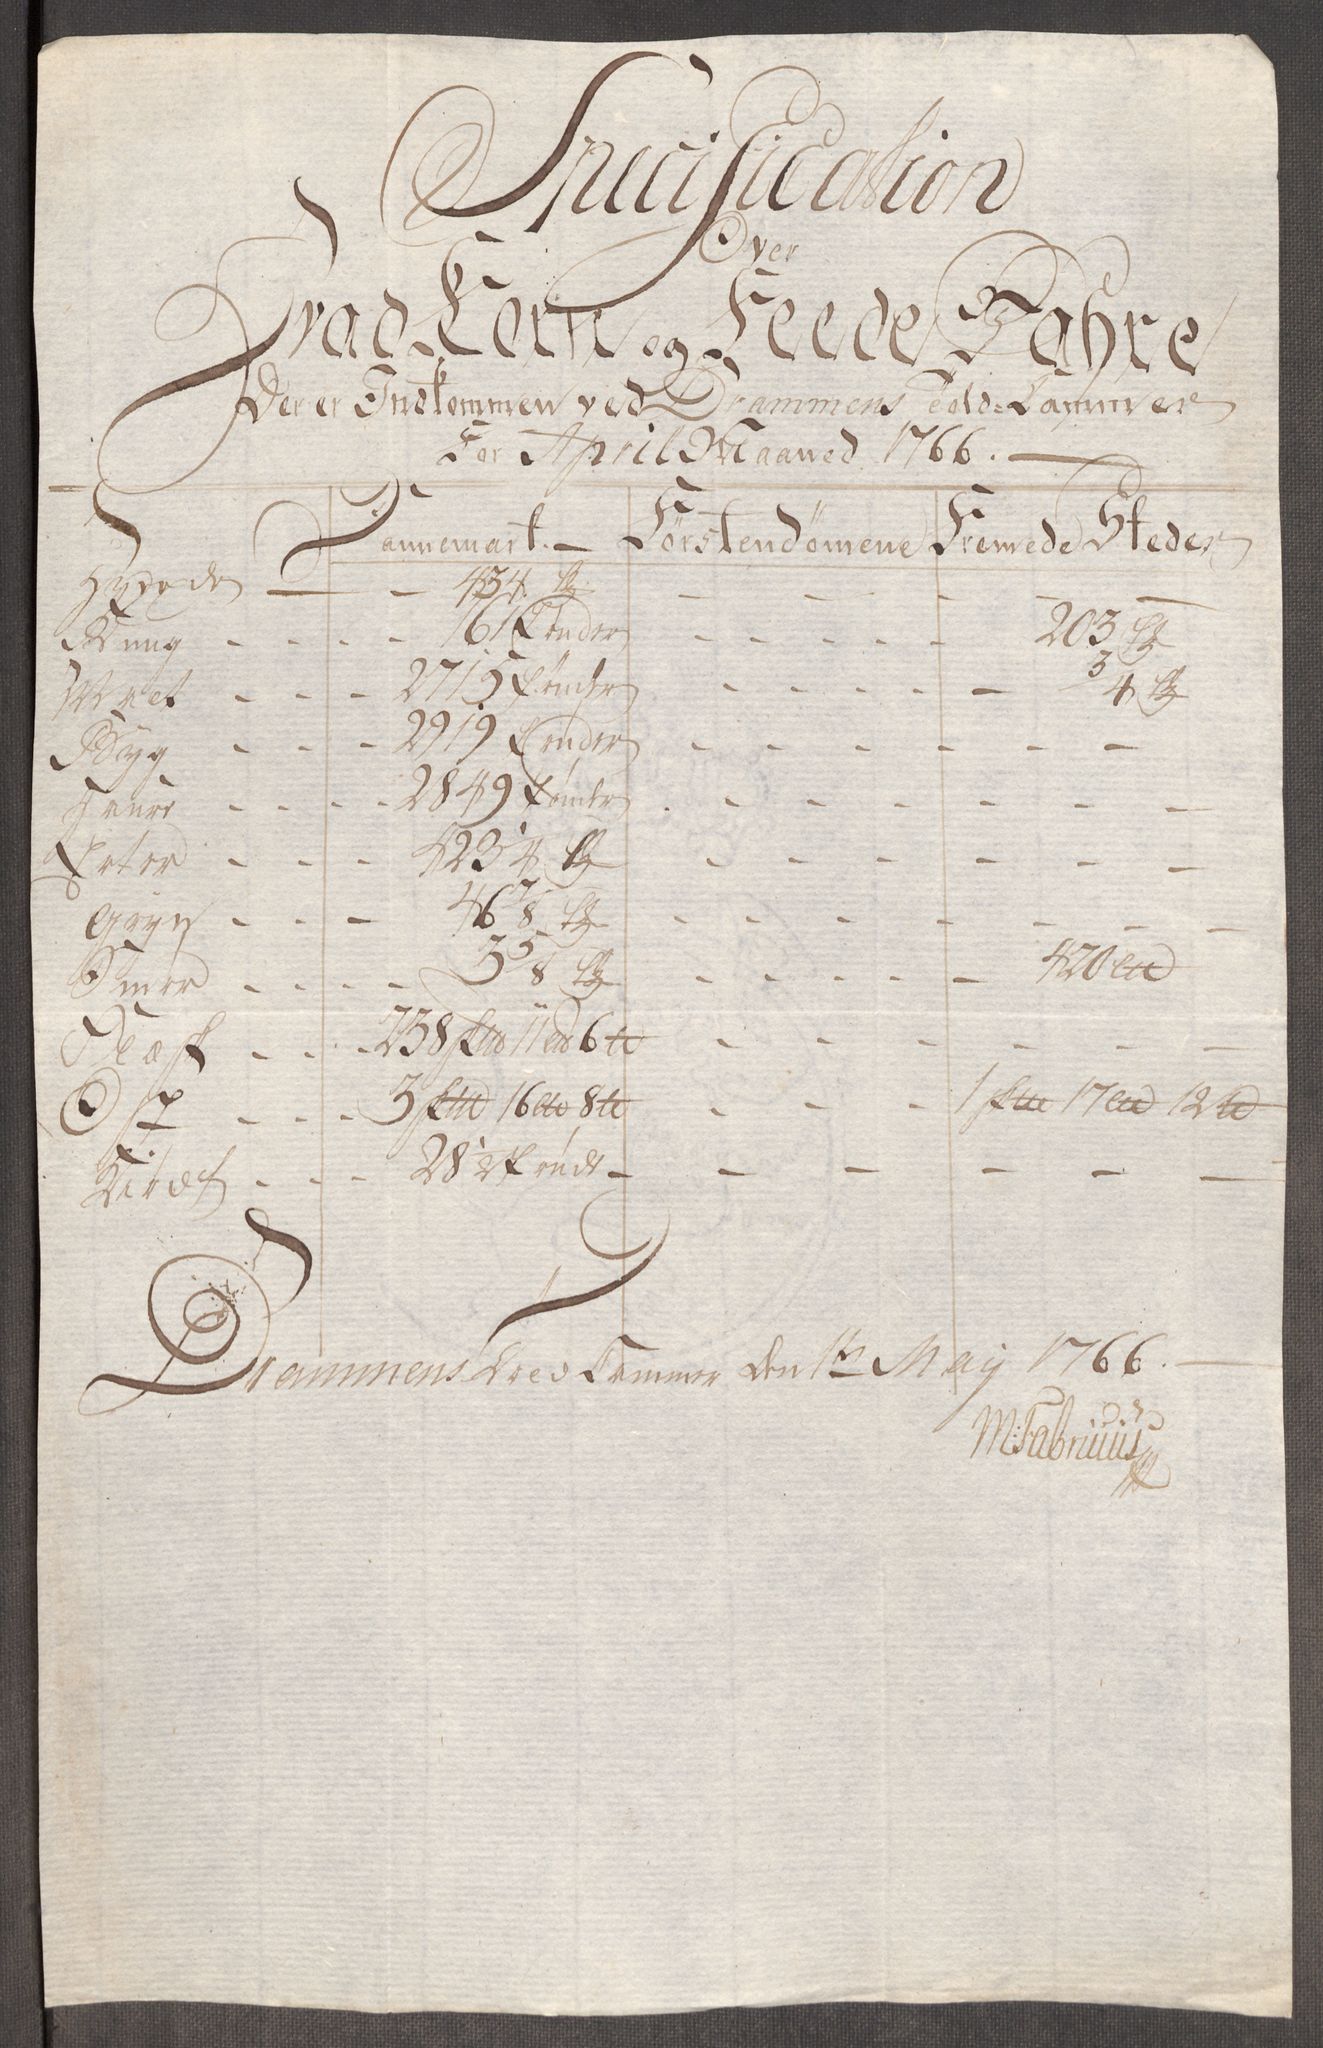 Specification
Over
Hvad Korn og Feede Vahre
Der er Indkommen ved Drammens Told=Cammer
For April Maaned 1766.
Dannemark. Förstendömene Fremede Steder
Hvede 434
Rug 161 Tønder 203
Malt 2715 Tønder 3/4
Byg 2919 Tønder
Haure 2849 Tønder
Erter 423 1/4
Gryn 46 7/8
Smør 3 5/8 420
Flesk 238 11 6
Ost 3 16 8 1 17 12
Kiødt 28 1/2 Tønde
Drammens Told Cammer den 1te May 1766.
M: Fabriuus